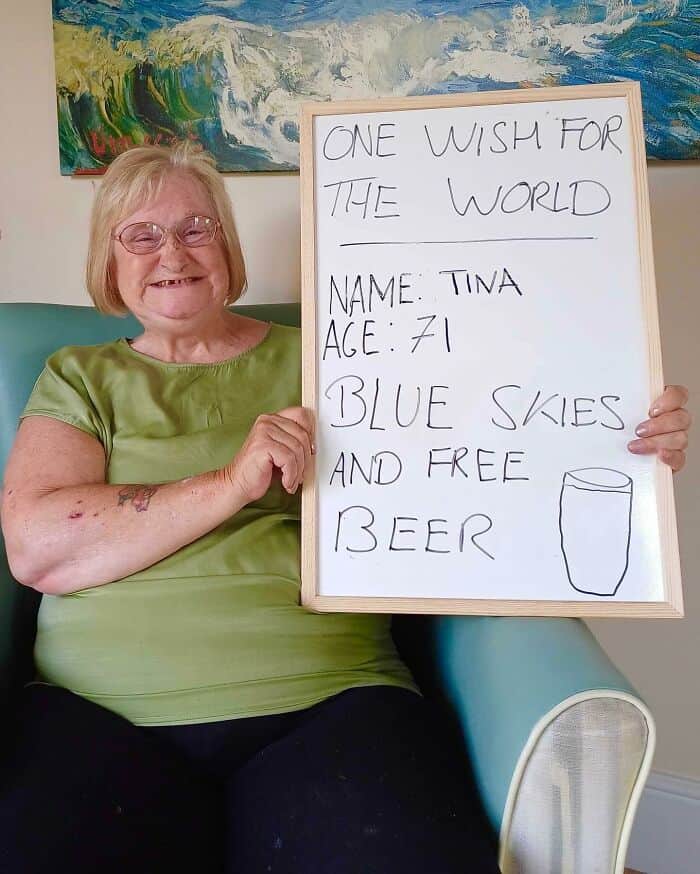 ONE WISH FOR
THE WORLD
NAME: TINA
AGE: 71
BLUE SKIES
AND FREE
BEER